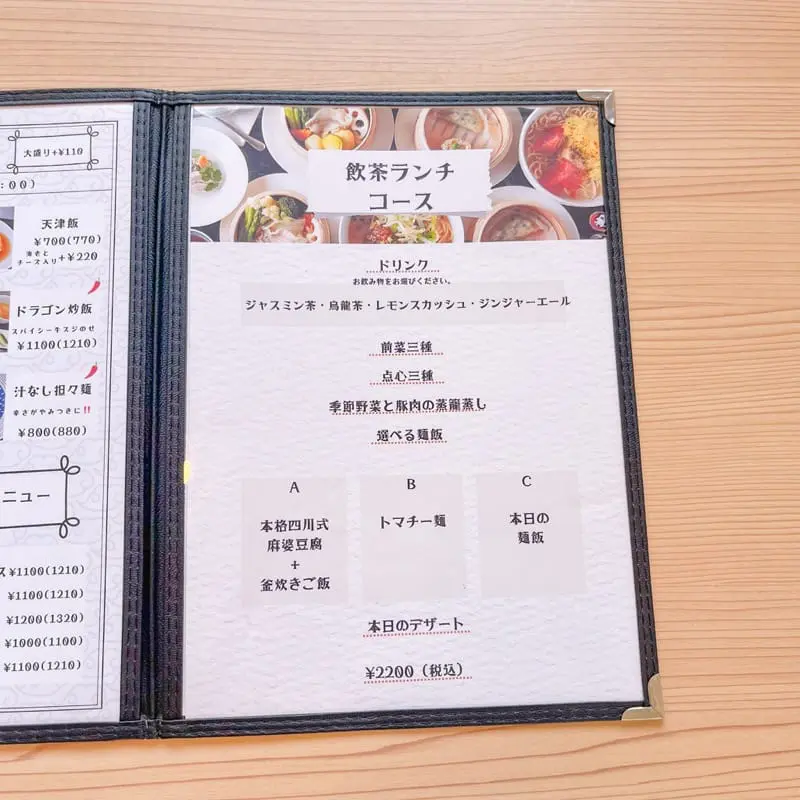 大盛り+¥110
:00)
天津飯
¥700(770)
海老と
チーズ入り+¥220
ドラゴン炒飯
スパイシー牛スジのせ
¥1100(1210)
汁なし担々麺
辛さがやみつきに!!
¥800(880)
ニュー
ス¥1100(1210)
¥1100(1210)
¥1200(1320)
¥1000(1100)
¥1100(1210)
飲茶ランチ
コース
ドリンク
お飲み物をお選びください。
ジャスミン茶・烏龍茶・レモンスカッシュ・ジンジャーエール
前菜三種
点心三種
季節野菜と豚肉の蒸籠蒸し
選べる麺飯
A
本格四川式
麻婆豆腐
+
釜炊きご飯
B
トマチー麺
C
本日の
麺飯
本日のデザート
¥2200（税込）